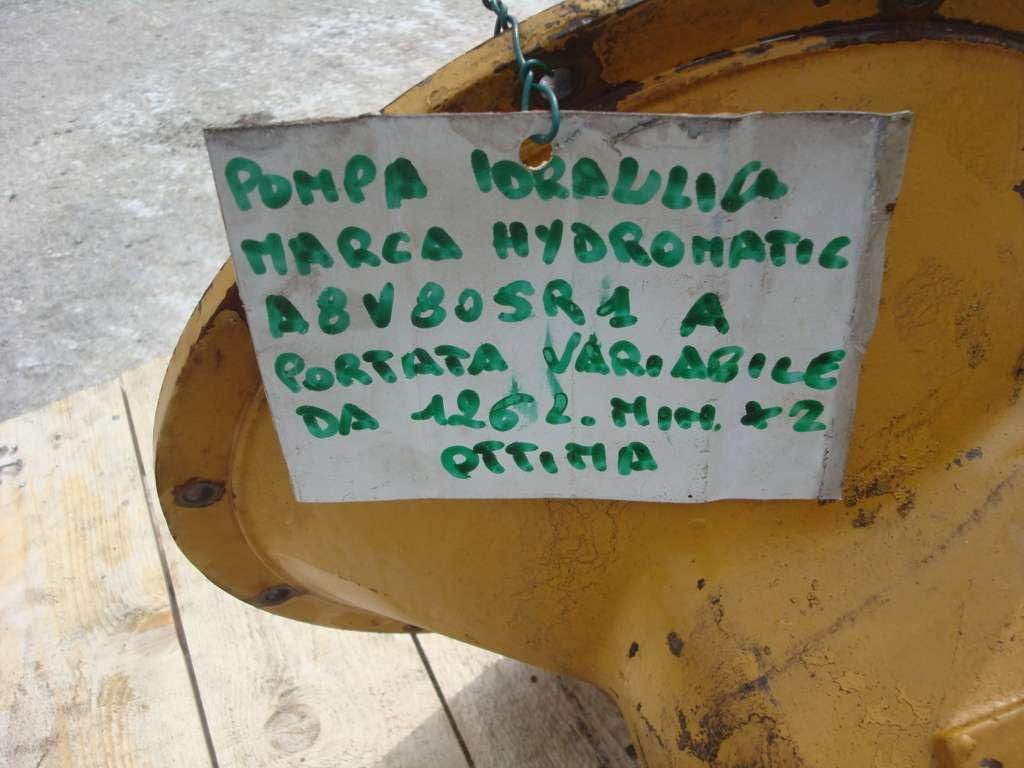 POMPA IDRAULICA
MARCA HYDROMATIC
A8V80SR1 A
PORTATA VARIABILE
DA 126 L. MIN. x2
OTTIMA